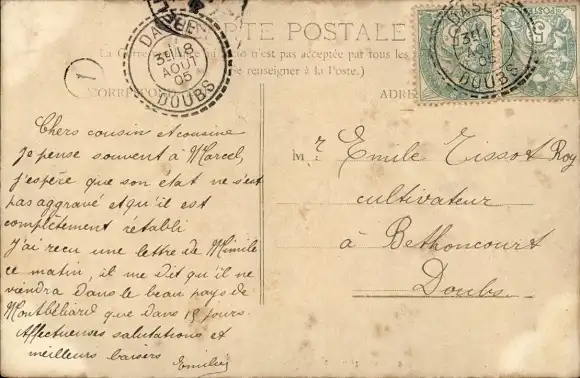 CARTE POSTALE
La Correspondance au recto n'est pas acceptée par tous les
se renseigner à la Poste.)
CORRESPO
ADRE
DASLE
3E / 18
AOUT
05
DOUBS
1
DASLE
3E / 18
AOUT
05
DOUBS
5
Chers cousin et cousine
Je pense souvent à Marcel,
j'espère que son état ne s'est
pas aggravé et qu'il est
complètement rétabli
J'ai reçu une lettre de Mimile
ce matin, il me dit qu'il ne
viendra dans le beau pays de
Montbéliard que dans 15 jours.
Affectueuses salutations et
meilleurs baisers
Emilie
Mr Emile Tissot Roy
cultivateur
à Bethoncourt
Doubs